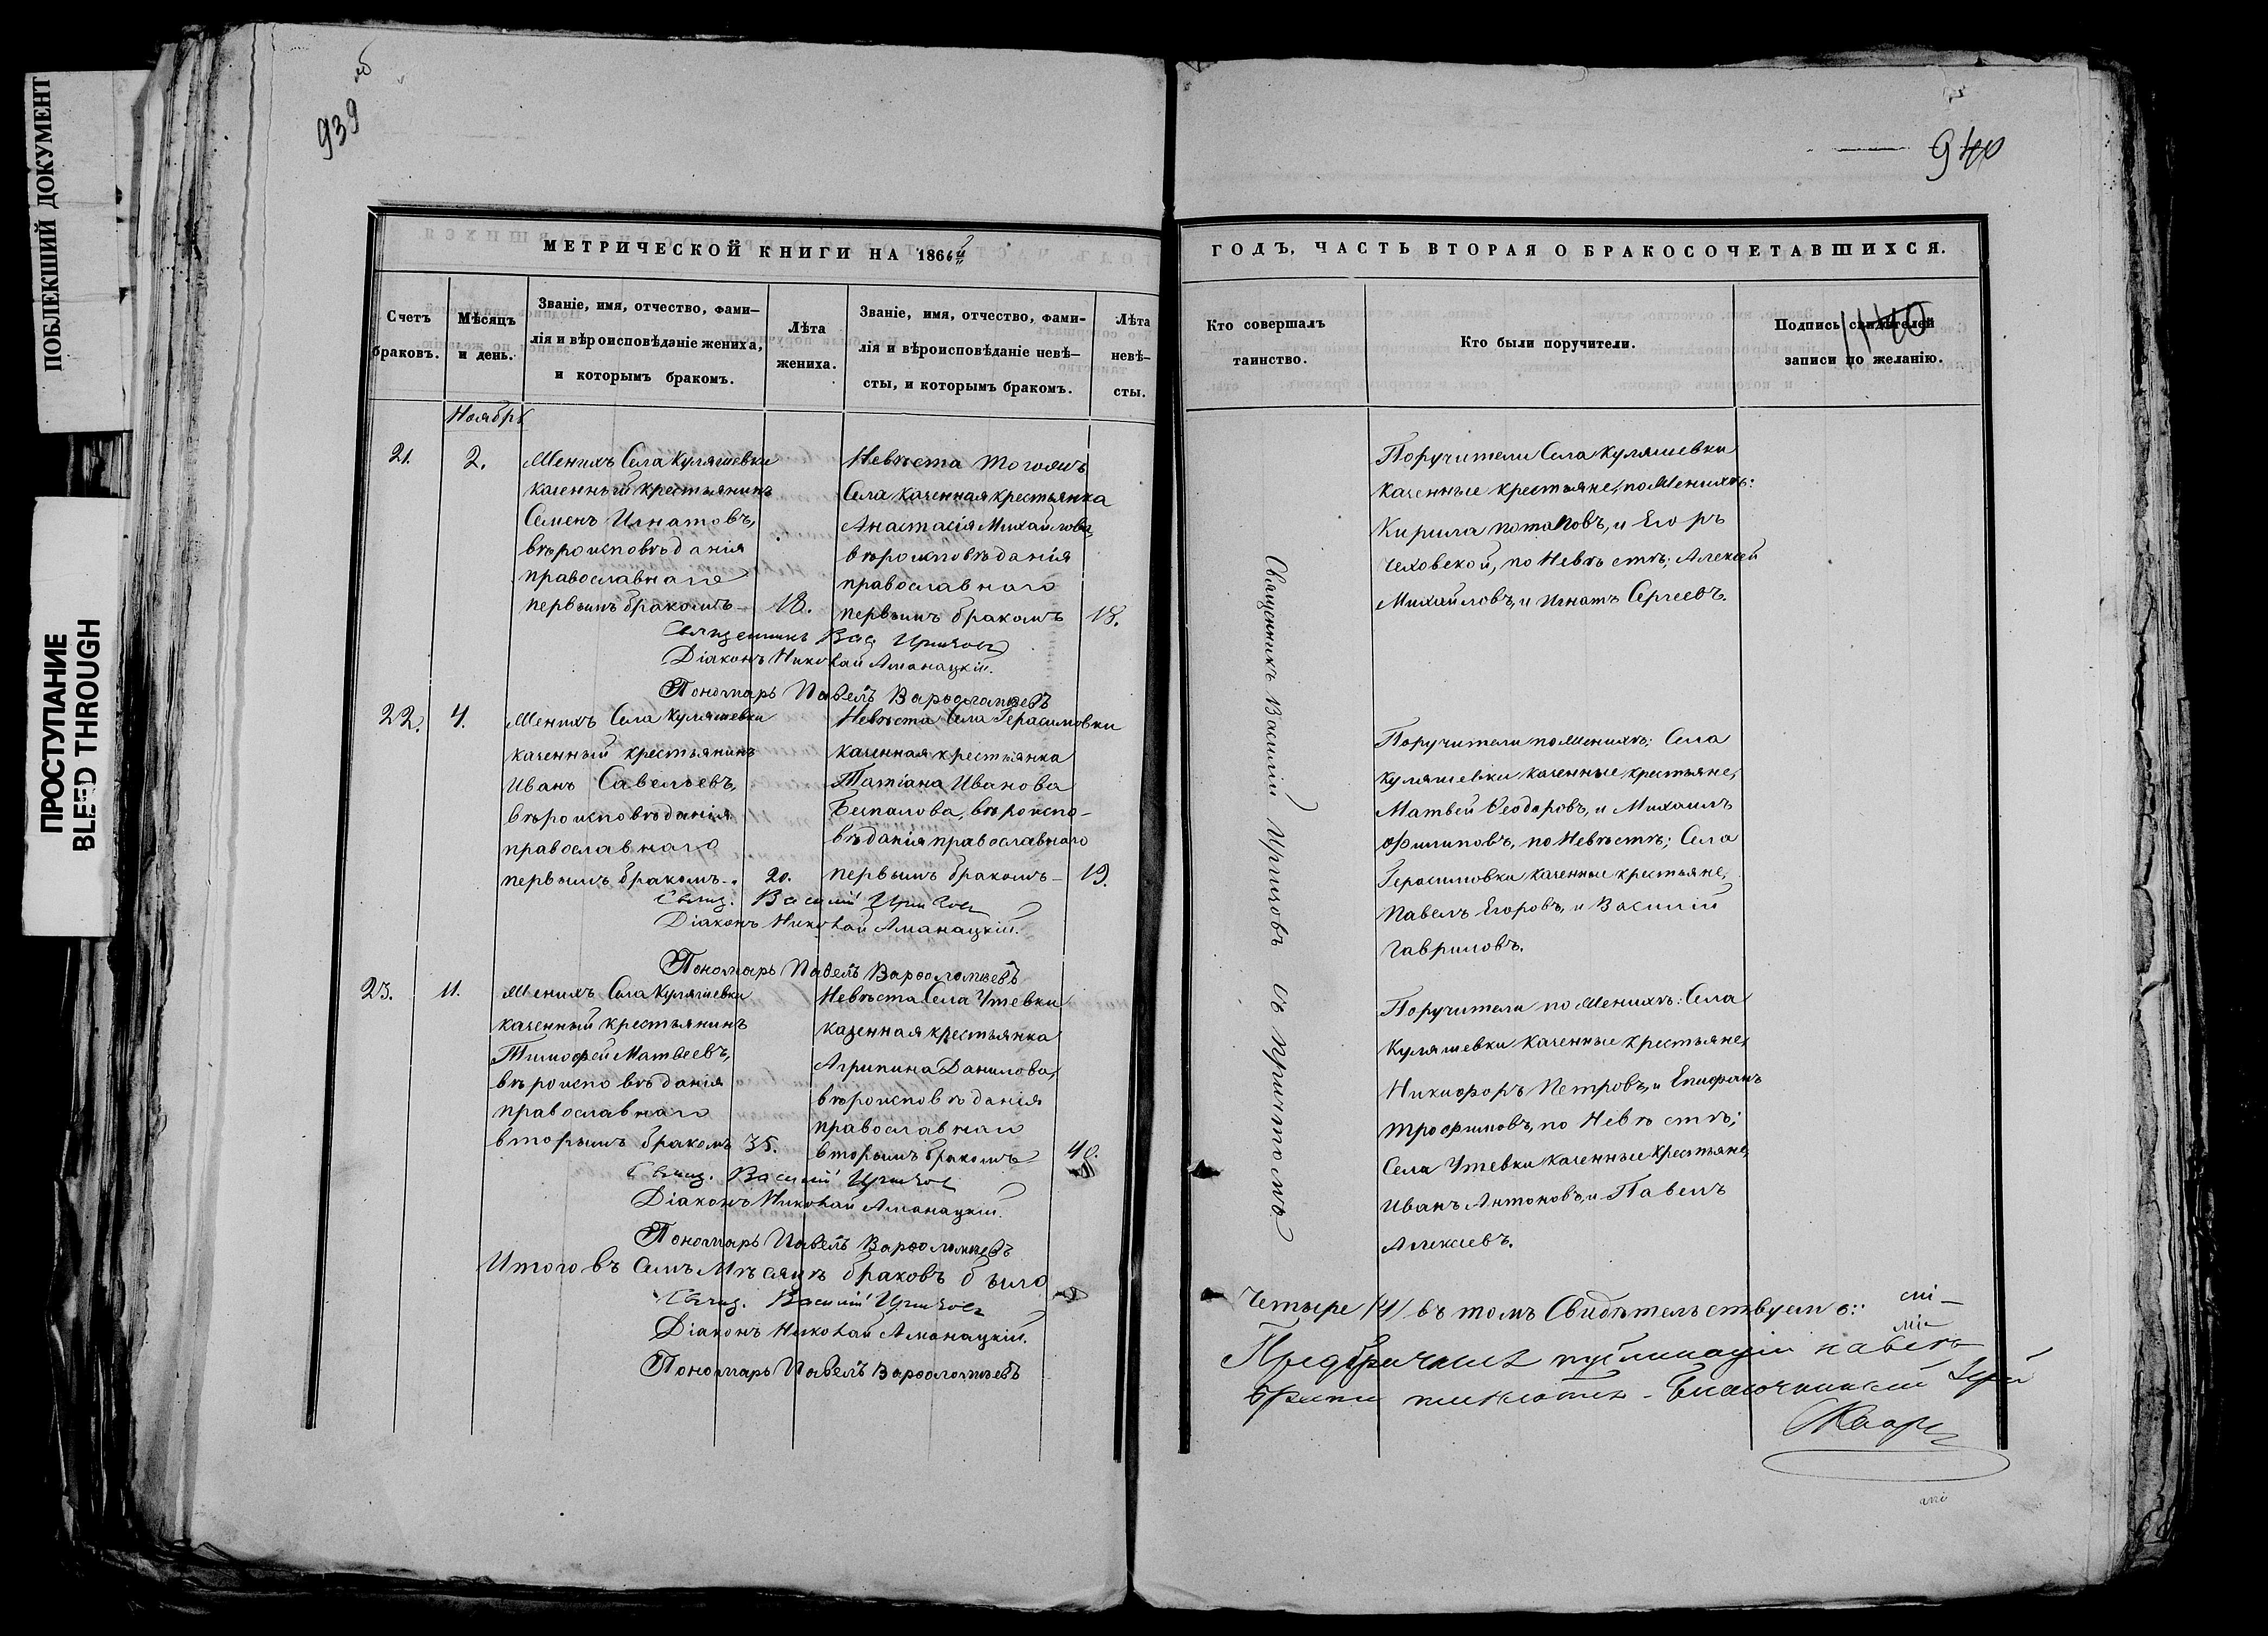 ПОБЛЕКШИЙ ДОКУМЕНТ
ПРОСТУПАНИЕ
BLEED THROUGH
939
940
МЕТРИЧЕСКОЙ КНИГИ НА 1866й
Счетъ браковъ.
Мѣсяцъ и день.
Званіе, имя, отчество, фами-
лія и вѣроисповѣданіе жениха,
и которымъ бракомъ.
Лѣта
жениха.
Званіе, имя, отчество, фами-
лія и вѣроисповѣданіе невѣ-
сты, и которымъ бракомъ.
Лѣта
невѣ-
сты.
Ноябрь
21.
2.
Женихъ Села Куляшевки
казенный крестьянинъ
Семенъ Игнатовъ,
вѣроисповѣданія
православнаго
первымъ бракомъ
18.
Невѣста тогожъ
Села казенная крестьянка
Анастасія Михайлова,
вѣроисповѣданія
православнаго
первымъ бракомъ
18.
Священникъ Вас.
Діаконъ Николай Аманацкій.
Пономарь Павелъ Варѳоломѣевъ
22.
4.
Женихъ Села Куляшевки
казенный крестьянинъ
Иванъ Савельевъ,
вѣроисповѣданія
православнаго
первымъ бракомъ.
20.
Невѣста Села Герасимовки
казенная крестьянка
Татіана Иванова
Беспалова, вѣроиспо-
вѣданія православнаго
первымъ бракомъ
19.
Свящ. Василій
Діаконъ Николай Аманацкій.
Пономарь Павелъ Варѳоломѣевъ
23.
11.
Женихъ Села Куляшевки
казенный крестьянинъ
Тимофей Матвеевъ,
вѣроисповѣданія
православнаго
вторымъ бракомъ
35.
Невѣста Села Утевки
казенная крестьянка
Агрипина Данилова,
вѣроисповѣданія
православнаго
вторымъ бракомъ
40.
Свящ. Василій
Діаконъ Николай Аманацкій.
Пономарь Павелъ Варѳоломѣевъ
Итого въ семъ Мѣсяцѣ браковъ было
Свящ. Василій
Діаконъ Николай Аманацкій.
Пономарь Павелъ Варѳоломѣевъ
ГОДЪ, ЧАСТЬ ВТОРАЯ О БРАКОСОЧЕТАВШИХСЯ.
Кто совершалъ
таинство.
Кто были поручители.
Подпись свидѣтелей
записи по желанію.
1140
Священникъ Василій съ причтомъ
Поручители Села Куляшевки
казенные крестьяне, по Женихѣ:
Кирила Потаповъ, и Егоръ
Чеховской, по Невѣстѣ: Алексѣй
Михайловъ, и Игнатъ Сергеевъ.
Поручители по Женихѣ: Села
Куляшевки казенные крестьяне,
Матвей Ѳеодоровъ, и Михаилъ
Филиповъ, по Невѣстѣ; Села
Герасимовки казенные крестьяне,
Павелъ Егоровъ, и Василій
Гавриловъ.
Поручители по Женихѣ: Села
Куляшевки казенные крестьяне,
Никифоръ Петровъ, и Епифанъ
Трофимовъ, по Невѣстѣ;
Села Утевки казенные крестьяне,
Иванъ Антоновъ, и Павелъ
Алексеевъ.
Четыре /4/ въ томъ Свидѣтельствуемъ: